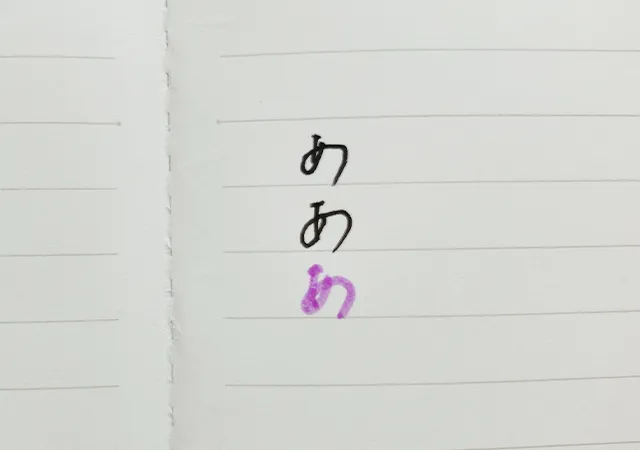 あ
あ
あ